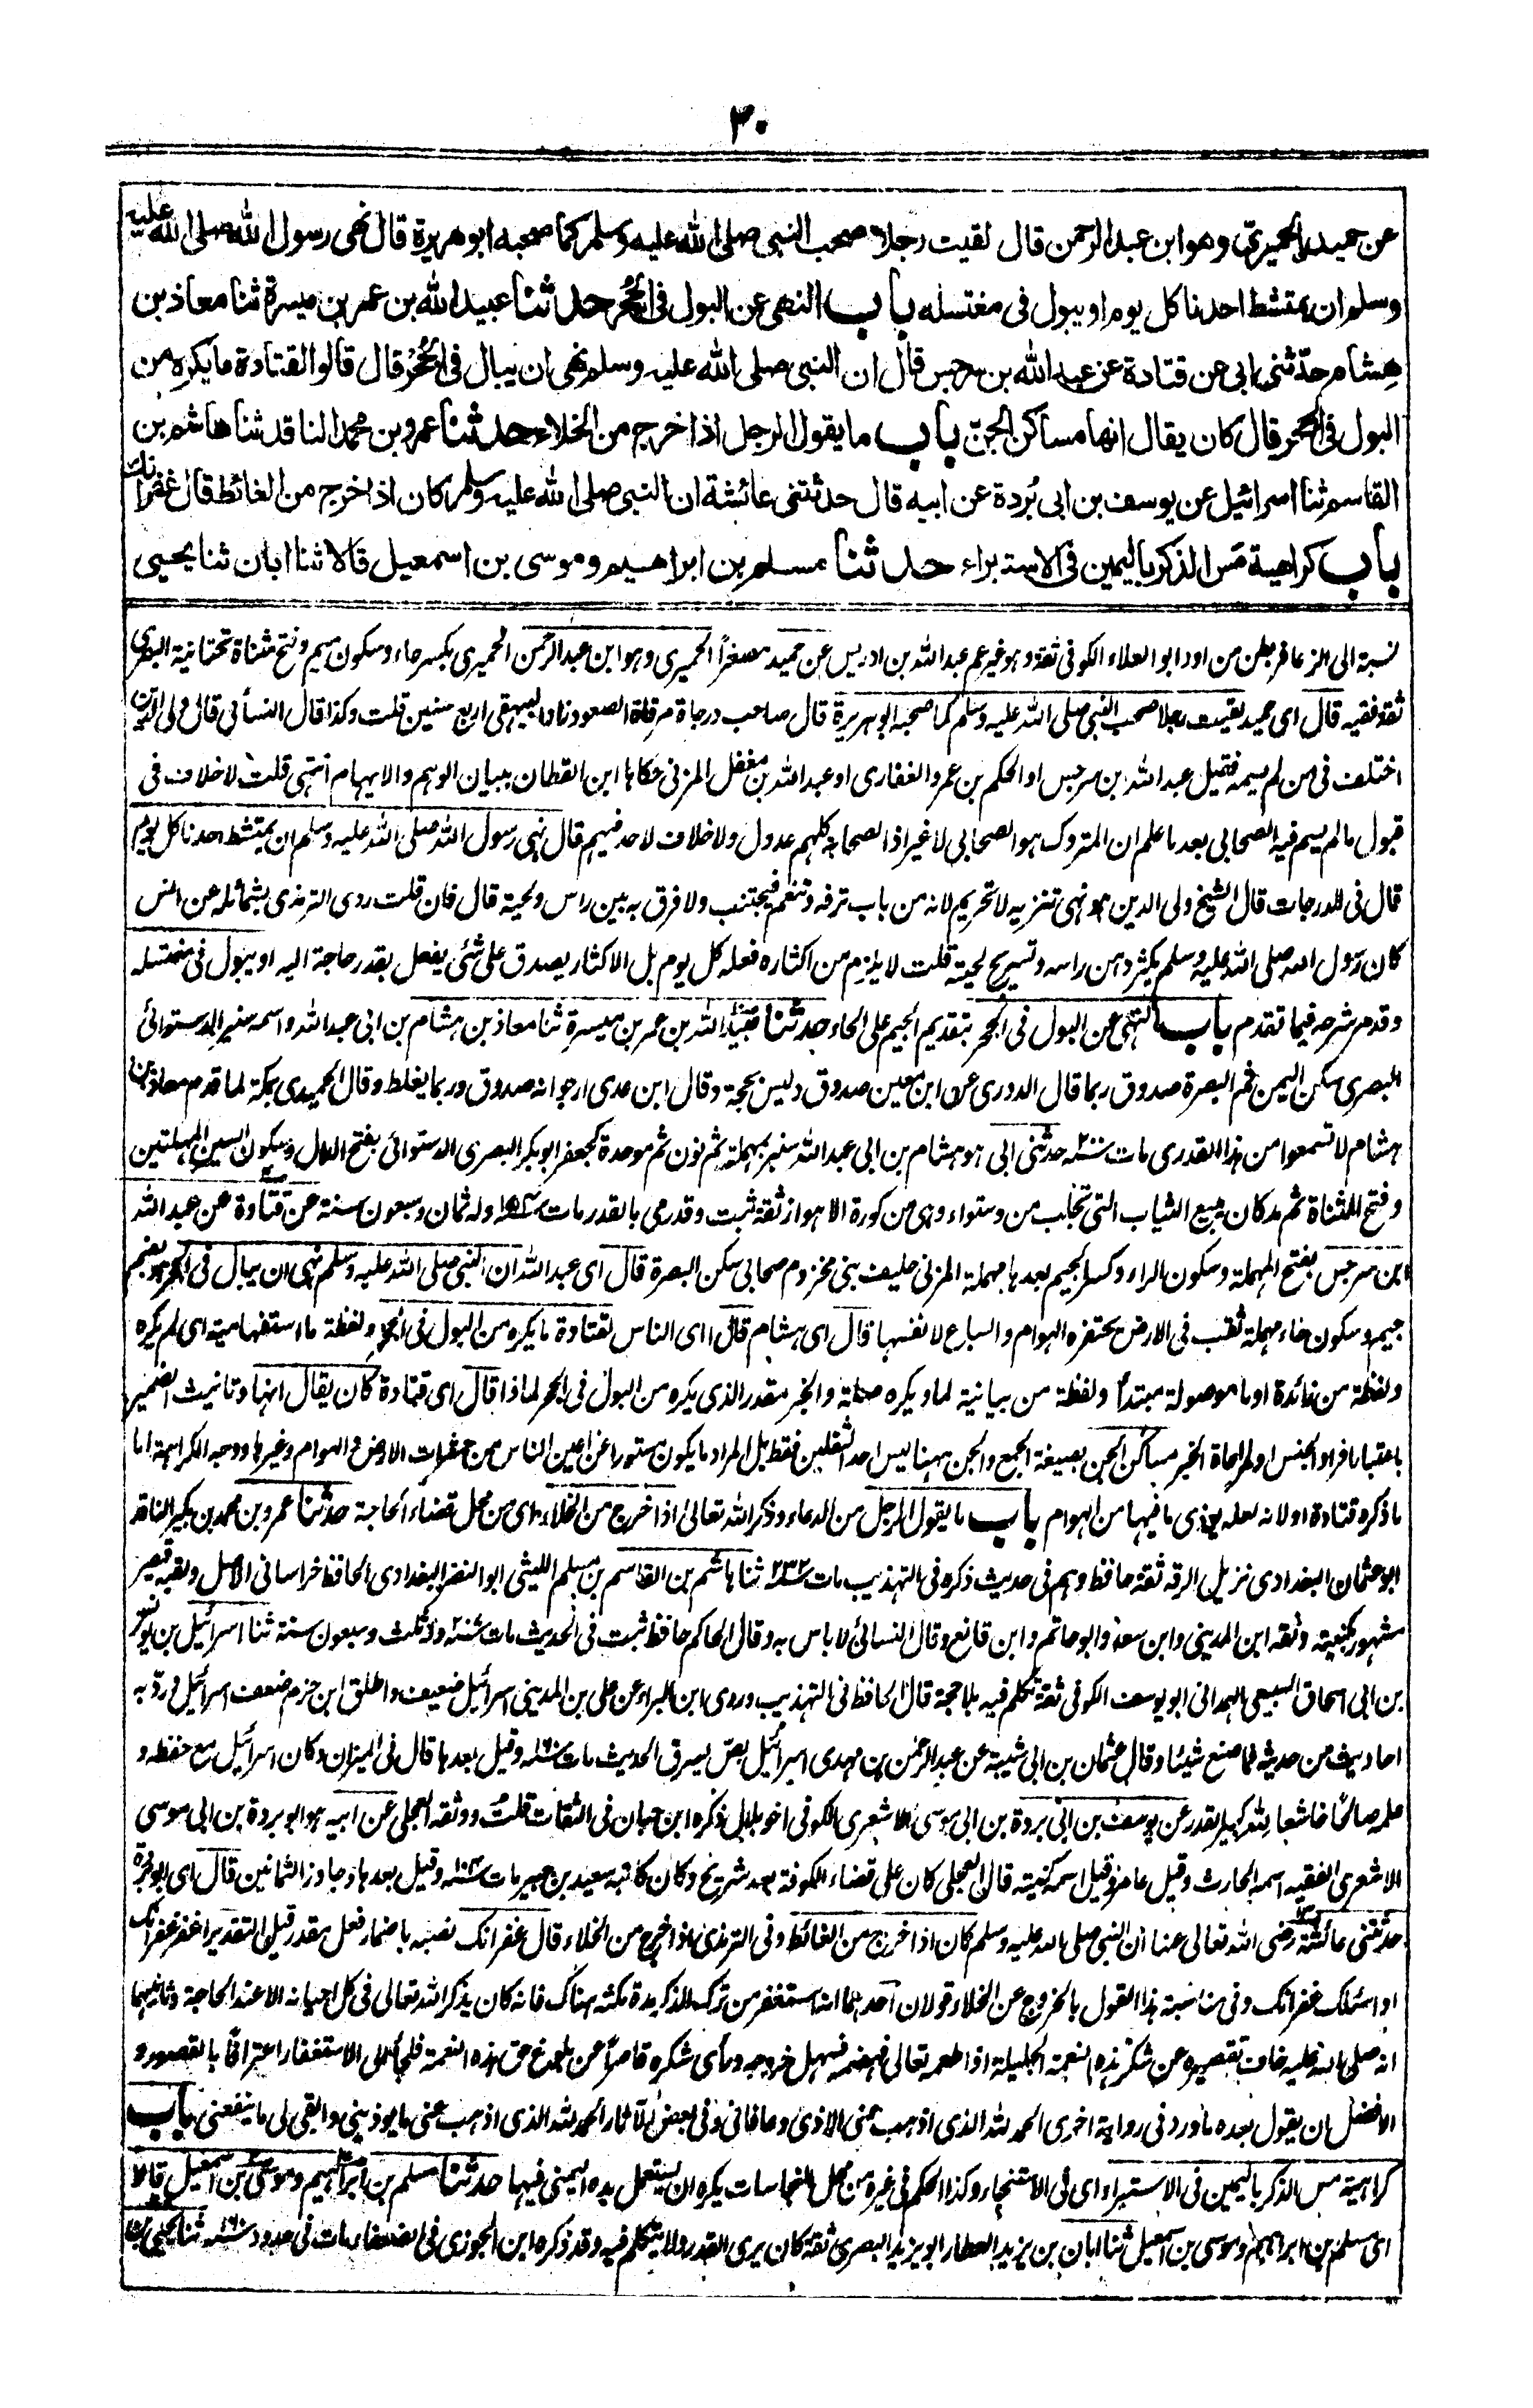 ۳۰
عن حميد الحميري وهو ابن عبد الرحمن قال لقيت رجلا صحب النبي صلى الله عليه وسلم كما صحبه ابو هريرة قال نهى رسول الله صلى الله عليه
وسلم ان يمتشط احدنا كل يوم او يبول في مغتسله باب النهي عن البول في الجُحْر حدثنا عبيد الله بن عمر بن ميسرة ثنا معاذ بن
هشام حدّثني ابي عن قتادة عن عبد الله بن سرجس قال ان النبي صلى الله عليه وسلم نهى ان يبال في الجُحْر قال قالوا لقتادة ما يكره من
البول في الجحر قال كان يقال انها مساكن الجنّ باب ما يقول الرجل اذا خرج من الخلاء حدثنا عمرو بن محمد الناقد ثنا هاشم بن
القاسم ثنا اسرائيل عن يوسف بن ابي بُردة عن ابيه قال حدثتني عائشة ان النبي صلى الله عليه وسلم كان اذا خرج من الغائط قال غفرانك
باب كراهية مَس الذكر باليمين في الاستبراء حدثنا مسلم بن ابراهيم وموسى بن اسمعيل قالا ثنا ابان ثنا يحيى
نسبة الى الزعافر بطن من اود ابو العلاء الكوفي ثقة وهو غير عم عبد الله بن ادريس عن حميد مصغراً الحميري وهو ابن عبد الرحمن الحميري بكسر حاء وسكون ميم وفتح مثناة تحتانية البصري
ثقة فقيه قال اى حميد لقيت رجلا صحب النبي صلى الله عليه وسلم كما صحبه ابو هريرة قال صاحب درجاة مرقاة الصعود زاد البيهقى اربع سنين قلت وكذا قال النسأئى قال ولى الدين
اختلف في من لم يسمه فقيل عبد الله بن سرجس او الحكم بن عمرو الغفارى او عبد الله بن مغفل المزنى حكاها ابن القطان ببيان الوهم والايهام انتهى قلت لا خلاف فى
قبول مالم يسم فيه الصحابى بعد ما علم ان المتروك هو الصحابى لا غير اذ الصحابة كلهم عدول ولا خلاف لاحد فيهم قال نهى رسول الله صلى الله عليه وسلم ان يمتشط احدنا كل يوم
قال في الدرجات قال الشيخ ولى الدين هو نهى تنزيه لا تحريم لانه من باب ترفه وتنعم فيجتنب ولا فرق به بين راس ولحية قال فان قلت روى الترمذى بشمائله عن انس
كان رسول الله صلى الله عليه وسلم يكثر دهن راسه وتسريح لحيته قلت لا يلزم من اكثاره فعله كل يوم بل الاكثار يصدق على شئى يفعل بقدر حاجة اليه او يبول فى مغتسله
وقد مر شرحه فيما تقدم باب النهى عن البول فى الجحر بتقديم الجيم على الحاء حدثنا عبيد الله بن عمر بن ميسرة ثنا معاذ بن هشام بن ابى عبد الله واسمه سنبر الدستوائى
البصرى سكن اليمن ثم البصرة صدوق ربما قال الدورى عن ابن معين صدوق وليس بحجة وقال ابن عدى ارجو انه صدوق وربما يغلط وقال الحميدى بمكة لما قدم معاذ بن
هشام لا تسمعوا من هذا القدرى مات سنة ٢٠٠ حدثنى ابى هو هشام بن ابى عبد الله سنبر بمهملة ثم نون ثم موحدة كجعفر ابو بكر البصرى الدستوائى بفتح الدال وسكون السين المهملتين
وفتح المثناة ثم مد كان يبيع الثياب التى تجلب من دستواء وهى من كورة الاهواز ثقة ثبت وقد رمى بالقدر مات وله ثمان وسبعون سنة عن قتادة عن عبد الله
ابن سرجس بفتح المهملة وسكون الراء وكسر الجيم بعدها مهملة المزنى حليف بنى مخزوم صحابى سكن البصرة قال اى عبد الله ان النبى صلى الله عليه وسلم نهى ان يبال فى الجحر هو بضم
جيم وسكون حاء مهملة ثقب فى الارض يحتفره الهوام والسباع لانفسها قال اى هشام قالوا اى الناس لقتادة ما يكره من البول فى الجحر ولفظة ما استفهامية اى لم يكره
ولفظة من زائدة او ما موصولة مبتدأ ولفظة من بيانية لما ويكره صلة والخبر مقدر الذى يكره من البول فى الجحر لماذا قال اى قتادة كان يقال انها وتانيث الضمير
باعتبار افراد الجنس او لمراعاة الخبر مساكن الجن بصيغة الجمع والجن ههنا ليس احد الثقلين فقط بل المراد ما يكون مستورا عن اعين الناس من حشرات الارض والهوام وغيرها ووجه الكراهية اما
ما ذكره قتادة او لانه لعله يوذى ما فيها من الهوام باب ما يقول الرجل من الدعاء وذكر الله تعالى اذا خرج من الخلاء اى من محل قضاء الحاجة حدثنا عمرو بن محمد بن بكير الناقد
ابو عثمان البغدادى نزيل الرقة ثقة حافظ وهم فى حديث ذكره فى التهذيب مات سنة ٢٣٢ ثنا هاشم بن القاسم بن مسلم الليثى ابو النضر البغدادى الحافظ خراسانى الاصل ولقبه قيصر
مشهور بكنيته وثقه ابن المدينى وابن سعد وابو حاتم وابن قانع وقال النسائى لا باس به وقال الحاكم حافظ ثبت فى الحديث مات وله ثلث وسبعون سنة ثنا اسرائيل بن يونس
بن ابى اسحاق السبيعى الهمدانى ابو يوسف الكوفى ثقة تكلم فيه بلا حجة قال الحافظ فى التهذيب وروى ابن البراء عن على بن المدينى اسرائيل ضعيف واطلق ابن حزم ضعف اسرائيل ورد به
احاديث من حديثه فما صنع شيئا وقال عثمان بن ابى شيبة عن عبد الرحمن بن مهدى اسرائيل لص يسرق الحديث مات سنة ١٦٠ وقيل بعدها قال فى الميزان وكان اسرائيل مع حفظه و
علمه صالحًا خاشعا لله كبير القدر عن يوسف بن ابى بردة بن ابى موسى الاشعرى الكوفى اخو بلال ذكره ابن حبان فى الثقات قلت ووثقه العجلى عن ابيه هو ابو بردة بن ابى موسى
الاشعرى الفقيه اسمه الحارث وقيل عامر وقيل اسمه كنيته قال العجلى كان على قضاء الكوفة بعد شريح وكان كاتبه سعيد بن جبير مات سنة ١٠٤ وقيل بعدها وجاوز الثمانين قال اى ابو بردة
حدثتنى عائشة رضى الله تعالى عنها ان النبى صلى الله عليه وسلم كان اذا خرج من الغائط وفى الترمذى اذا خرج من الخلاء قال غفرانك نصبه باضمار فعل مقدر قيل التقدير اغفر غفرانك
او اسئلك غفرانك وفى مناسبة هذا القول بالخروج عن الخلاء قولان احدهما انه استغفر من ترك الذكر مدة مكثه هناك فانه كان يذكر الله تعالى فى كل احيانه الا عند الحاجة وثانيهما
انه صلى الله عليه خاف تقصيره عن شكر هذه النعمة الجليلة اذ اطعمه تعالى فهضمه فسهل خروجه ورأى شكره قاصراً عن بلوغ حق هذه النعمة فلجأ الى الاستغفار اعترافًا بالقصور و
الافضل ان يقول بعده ما ورد فى رواية اخرى الحمد لله الذى اذهب عنى الاذى وعافانى وفى بعض الآثار الحمد لله الذى اذهب عنى ما يوذينى وابقى لى ما ينفعنى باب
كراهية مس الذكر باليمين فى الاستبراء اى فى الاستنجاء وكذا الحكم فى غيره من محل النجاسات يكره ان يستعمل يده اليمنى فيها حدثنا مسلم بن ابراهيم وموسى بن اسمعيل قالا
اى مسلم بن ابراهيم وموسى بن اسمعيل ثنا ابان بن يزيد العطار ابو يزيد البصرى ثقة كان يرى القدر ولا يتكلم فيه وقد ذكره ابن الجوزى فى الضعفاء مات فى حدود سنة ١٦٠ ثنا يحيى